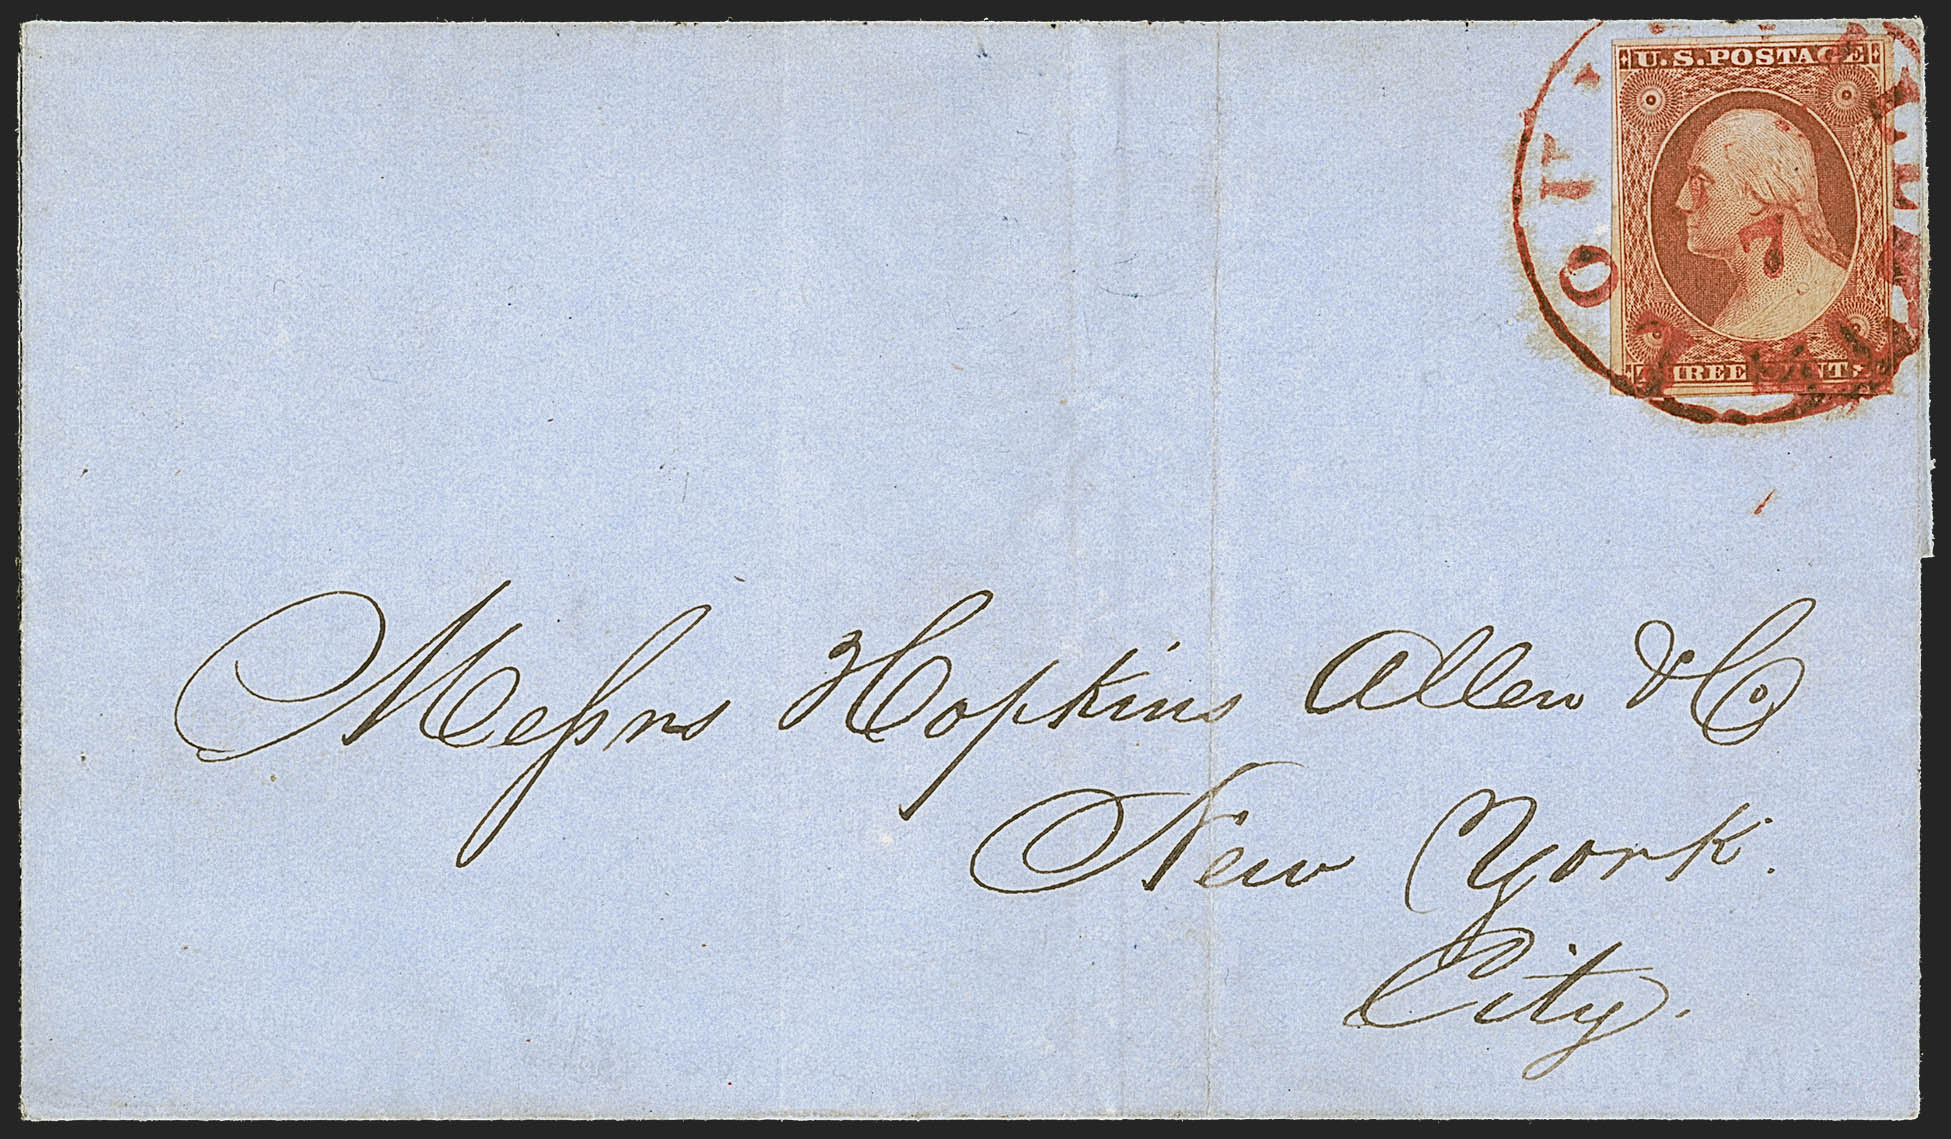 U.S. POSTAGE
7
THREE CENTS
Messrs Hopkins Allen & Co
New York.
City.